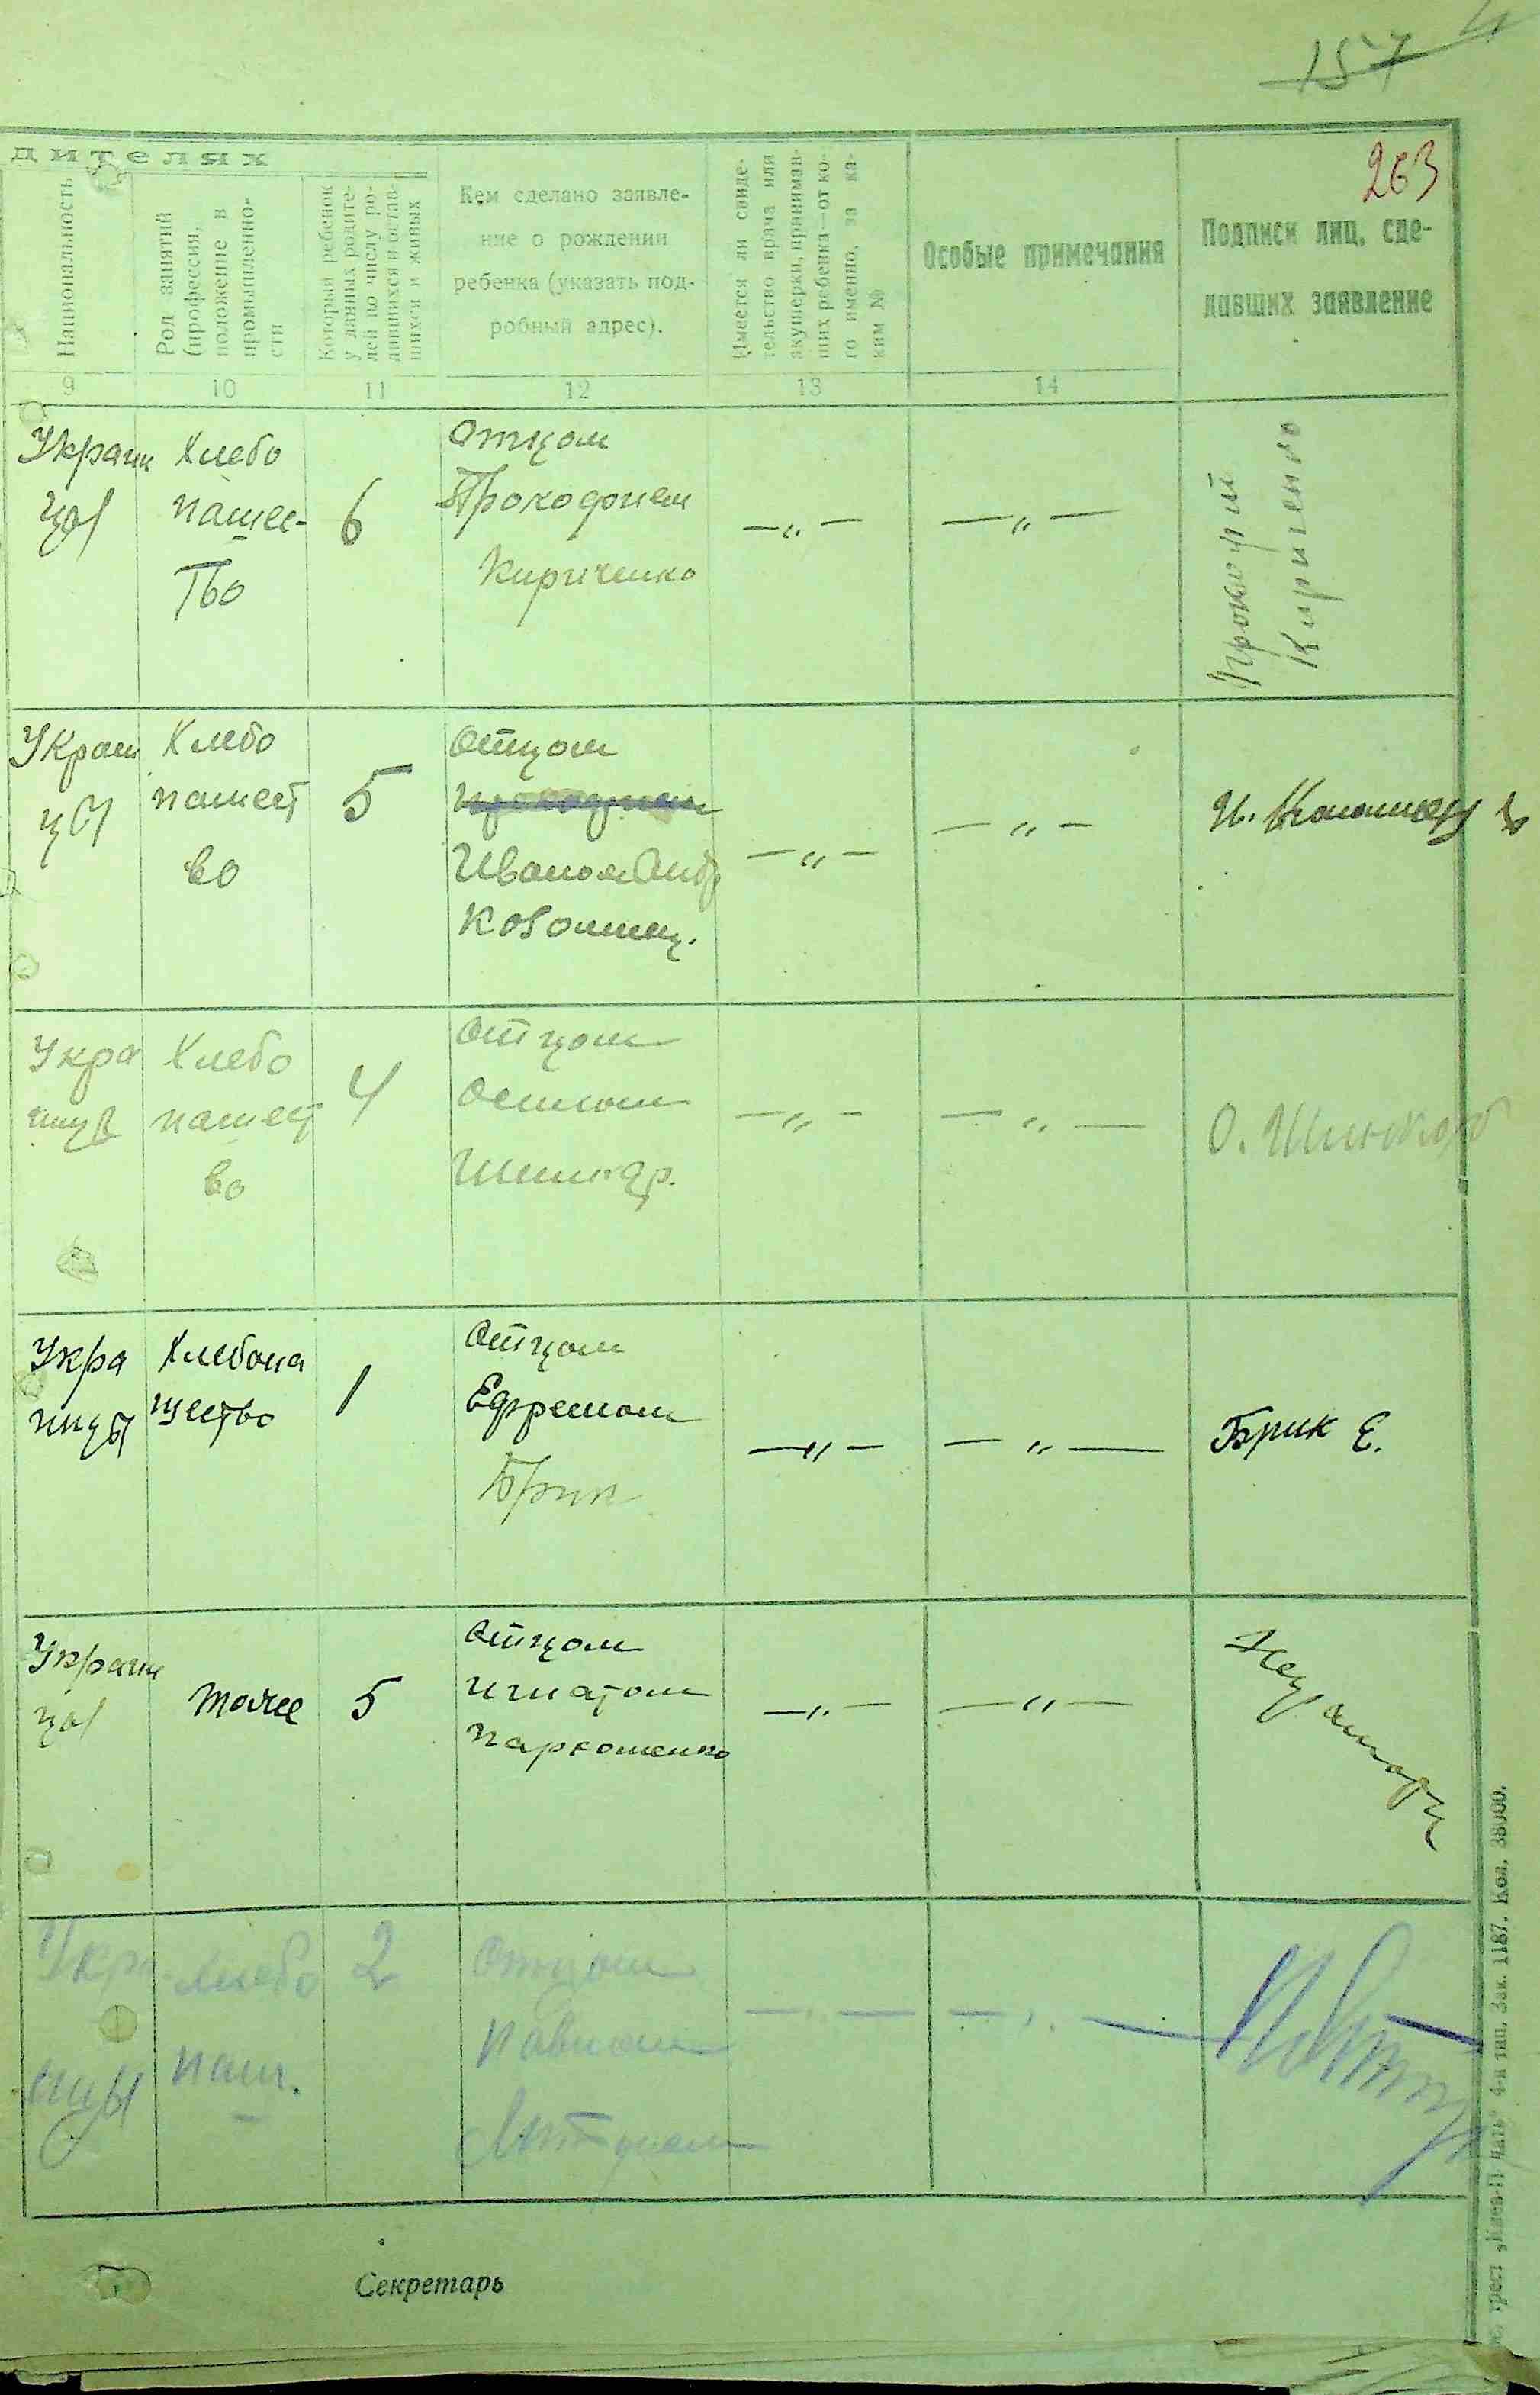 157
263
дителях
Национальность
Род занятий
(профессия,
положение в
промышленно-
сти
Который ребенок
у данных родите-
лей по числу ро-
дившихся и остав-
шихся в живых
Кем сделано заявле-
ние о рождении
ребенка (указать под-
робный адрес).
Имеется ли свиде-
тельство врача или
акушерки, принимав-
ших ребенка—от ко-
го именно, за ка-
ким №
Особые примечания
Подписи лиц, сде-
лавших заявление
9 10 11 12 13 14
Украин
цы
Хлебо
пашес-
тво
6
Отцом
Прокофием
Кириченко
—„—
—„—
Прокофий
Кириченко
Украин
цы
Хлебо
пашест
во
5
Отцом
Иваном Андр
Коломиец.
—„—
—„—
И. Коломиец
Укра
инцы
Хлебо
пашест
во
4
Отцом
Шинкар.
—„—
—„—
О.
Укра
инцы
Хлебопа
шество
1
Отцом
Ефремом
Брик
—„—
—„—
Брик Е.
Украин
цы
тоже
5
Отцом
Игнатом
Пархоменко
—„—
—„—
Укра
инцы
Хлебо
паш.
2
Отцом
Павлом
—„—
—„—
Секретарь
4-я тип. Зак. 1187. Кол. 38000.